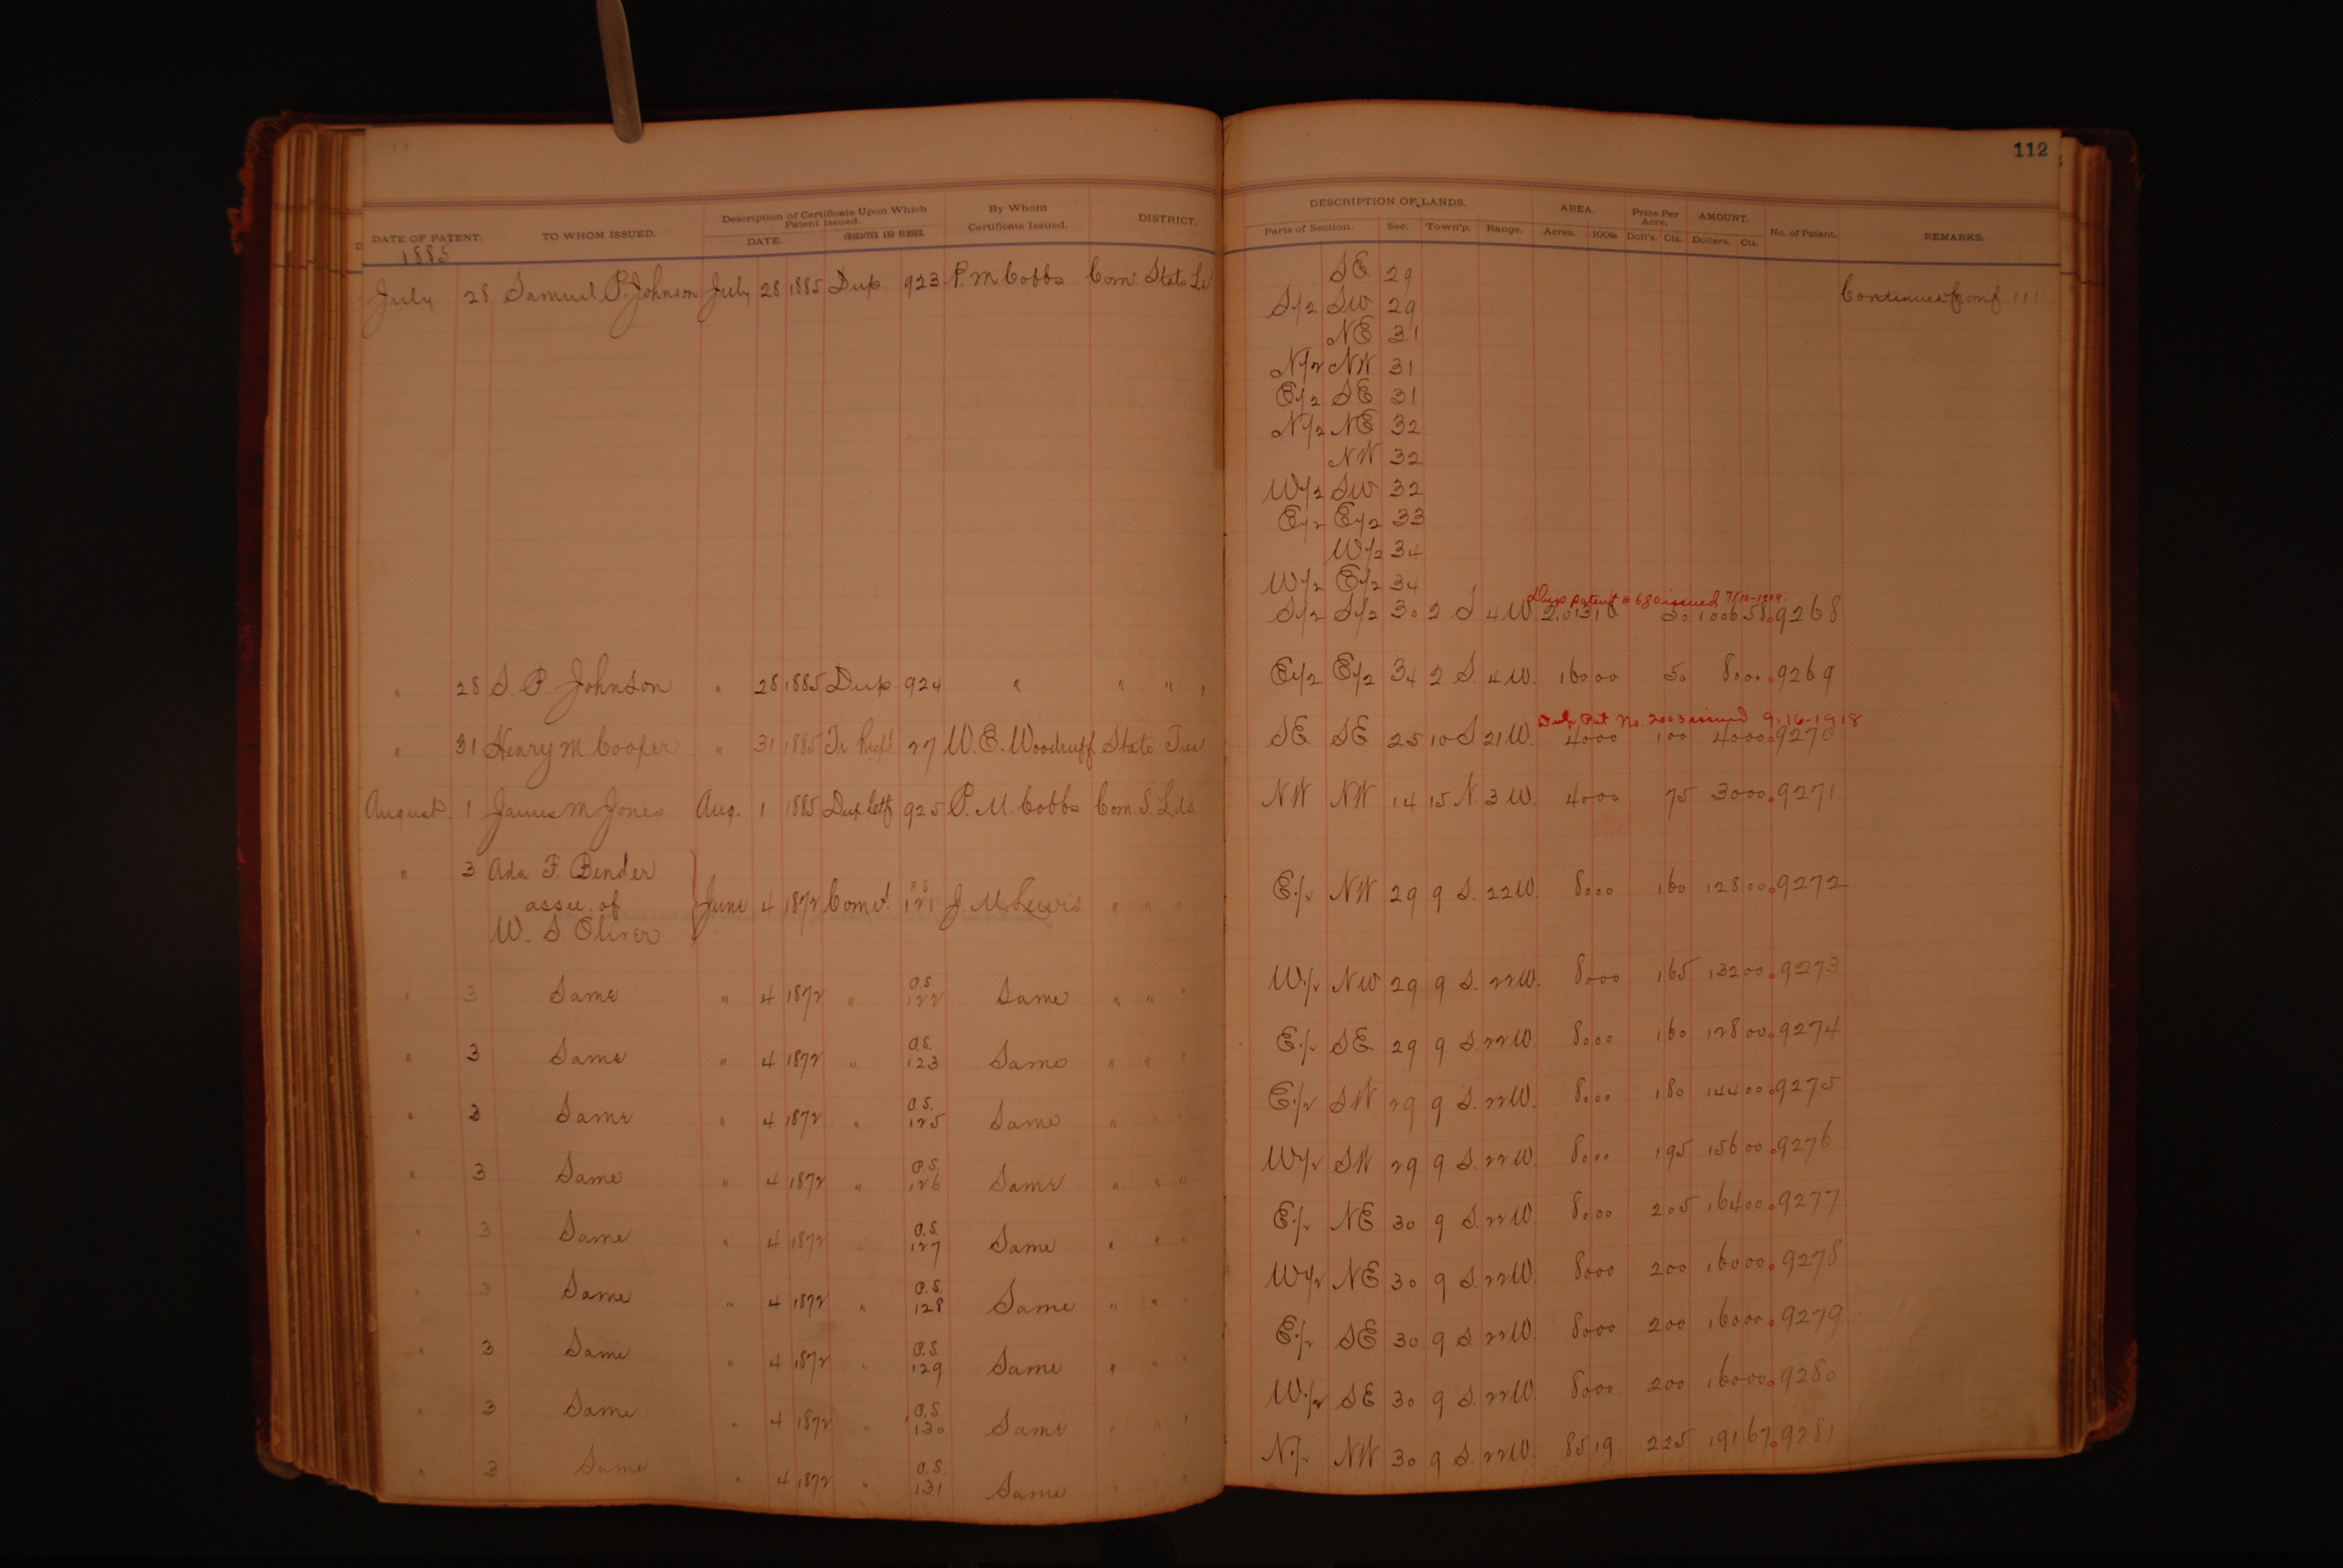 112
DATE OF PATENT. TO WHOM ISSUED. Description of Certificate Upon Which Patent Issued. DATE. CHARACTER AND NUMBER. By Whom Certificate Issued. DISTRICT. DESCRIPTION OF LANDS. Parts of Section. Sec. Town'p. Range. AREA. Acres. 100ths Price Per Acre. Doll's. Cts. AMOUNT. Dollars. Cts. No. of Patent. REMARKS.
1885
July 28 Samuel P. Johnson July 28 1885 Dup 923 P. M Cobbs Com. State Ld SE 29 Continued from p. 111
S/2 SW 29
NE 31
N/2 NW 31
E/2 SE 31
N/2 NE 32
NW 32
W/2 SW 32
E/2 E/2 33
W/2 34
W/2 E/2 34
Dup patent # 680 issued 7/10-1909.
S/2 S/2 30 2 S 4W 2.013 16 50 1006 58 9268
" 28 S. P. Johnson " 28 1885 Dup. 924 " " " " E/2 E/2 34 2 S. 4W. 160 00 50 80 00 9269
Dup Pat No. 2003 issued 9-16-1918
" 31 Henry M. Cooper " 31 1885 Tr. Recpt 27 W. E. Woodruff State Treas SE SE 25 10 S 21W. 40 00 1 00 40 00 9270
August 1 James M Jones Aug. 1 1885 Dup. Ctf 925 P. M. Cobbs Com. S. Lds. NW NW 14 15 N. 3 W. 40 00 75 30 00 9271
" 3 Ada F. Bender
assee. of June 4 1872 Com'd. P.S. 121 J. M. Lewis " " " E/2 NW 29 9 S. 22W. 80 00 1 60 128 00 9272
W. S. Oliver
" 3 Same " 4 1872 " O.S. 122 Same " " " W/2 NW 29 9 S. 22W. 80 00 1 65 132 00 9273
" 3 Same " 4 1872 " O.S. 123 Same " " " E/2 SE 29 9 S. 22W. 80 00 1 60 128 00 9274
" 3 Same " 4 1872 " O.S. 125 Same " E/2 SW 29 9 S. 22W. 80 00 1 80 144 00 9275
" 3 Same " 4 1872 " P.S. 126 Same " " " W/2 SW 29 9 S. 22W. 80 00 1 95 156 00 9276
" 3 Same " 4 1872 " O.S. 127 Same " " " E/2 NE 30 9 S. 22W. 80 00 2 05 164 00 9277
" 3 Same " 4 1872 " O.S. 128 Same " " W/2 NE 30 9 S. 22W. 80 00 2 00 160 00 9278
" 3 Same " 4 1872 " O.S. 129 Same " " " E/2 SE 30 9 S. 22W. 80 00 2 00 160 00 9279
" 3 Same " 4 1872 " O.S. 130 Same " " " W/2 SE 30 9 S. 22W. 80 00 2 00 160 00 9280
" 3 Same " 4 1872 " O.S. 131 Same " " N/2 NW 30 9 S. 22W. 85 19 2 25 191 67 9281